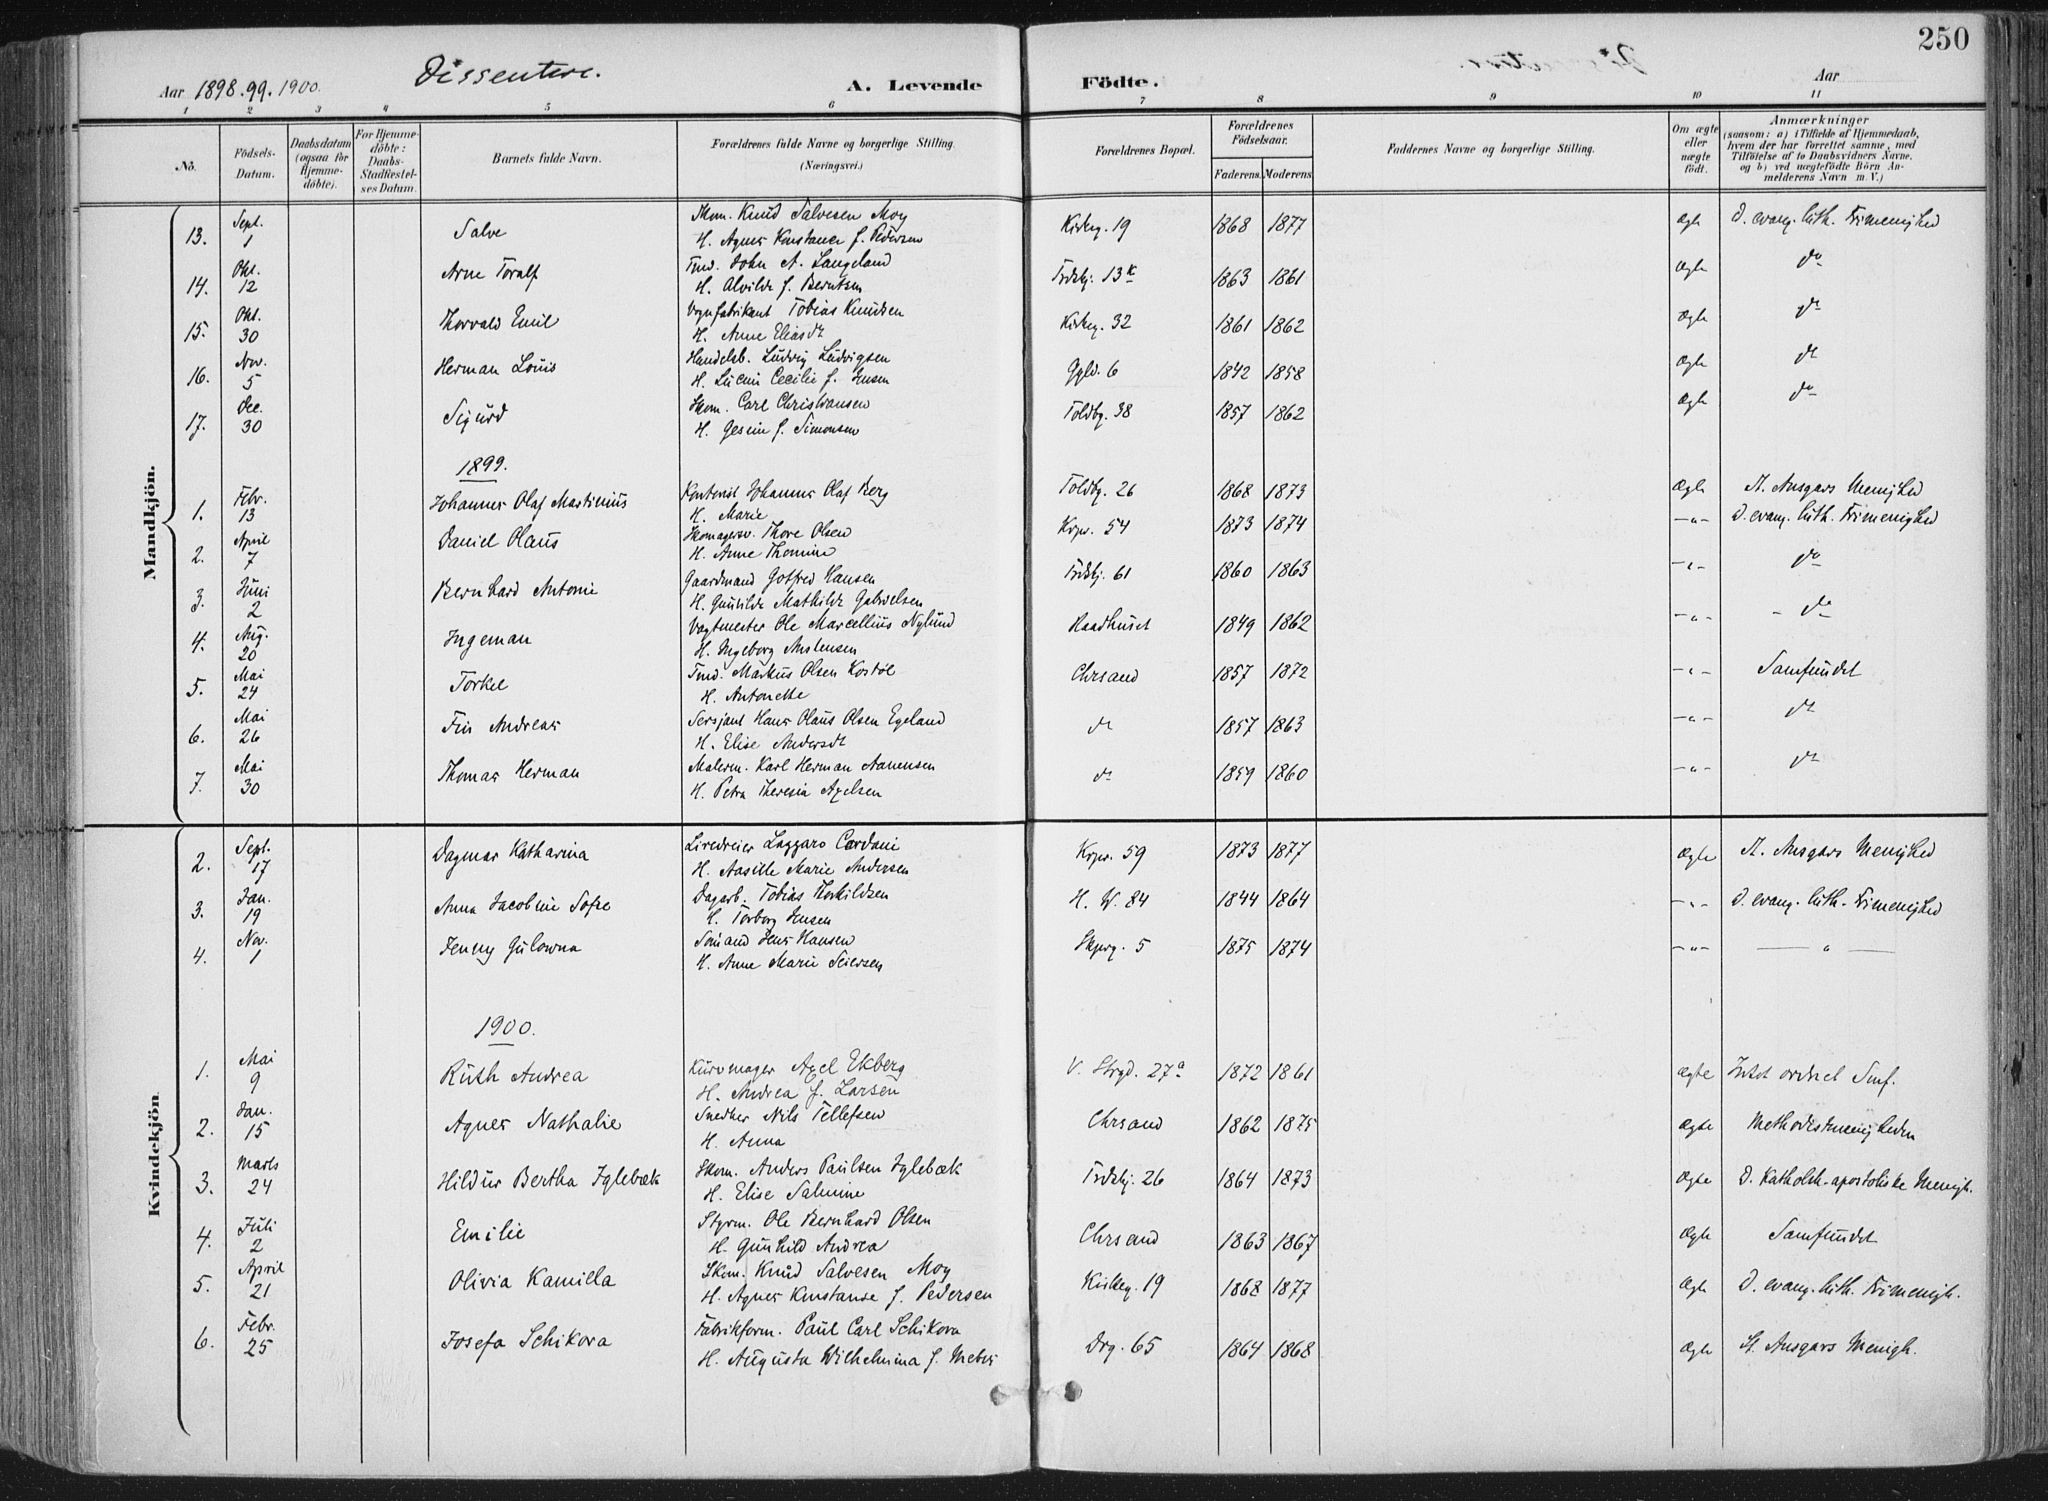 250
Dissentere.
Aar 1898.99.1900.
A. Levende
Födte.
Aar
1 2 3 4 5 6 7 8 9 10 11
No.
Födsels-Datum.
Daabsdatum (ogsaa for Hjemmedöbte).
For Hjemmedöbte: Daabs-Stadfæstelses Datum.
Barnets fulde Navn.
Forældrenes fulde Navne og borgerlige Stilling.
(Næringsvei.)
Forældrenes Bopæl.
Forældrenes Födselsaar.
Faderens. Moderens.
Faddernes Navne og borgerlig Stilling.
Om ægte eller uægte födt.
Anmærkninger
(saasom: a) i Tilfælde af Hjemmedaab, hvem der har forrettet samme, med Tilföielse af to Daabsvidners Navne, og b) ved uægtefödte Börn Anmelderens Navn m. V.)
Mandkjön.
13. Sept. 1 Salve Skom. Knud Salvesen Moy Kirkeg. 19 1868 1877 Ægte d. evang. luth. Frimenighed
H. Agnes Konstance f. Pedersen
14. Okt. 12 Arne Toralf Tmd. John A. Langeland 1863 1861 Ægte do
H. Alvilde f. Berntsen
15. Okt. 30 Thorvald Emil Vognfabrikant Tobias Knudsen Kirkeg. 32 1861 1862 Ægte do
H. Anne Eliasdt
16. Nov. 5 Herman Louis Handelsb. Ludvig Ludvigsen Ggld. 6 1842 1858 Ægte do
H. Lucie Cecilie f. Jensen
17. Dec. 30 Sigurd Skom. Carl Christiansen Toldbg. 38 1857 1862 Ægte do
H. Gesine f. Simonsen
1899.
1. Febr. 13 Johannes Olaf Martinius Kontorist Johannes Olaf Berg Toldbg. 26 1868 1873 Ægte St. Ansgars Menighed
H. Marie
2. April 7 Daniel Olaus Skomagersv. Thore Olsen Krpr. 54 1873 1874 -"- d. evang. luth. Frimenighed
H. Anne Thomine
3. Juni 2 Bernhard Antonie Gaardmand Gotfred Hansen Trdskj. 61 1860 1863 -"- do
H. Gunilde Mathilde Gabrielsen
4. Aug. 20 Ingeman Vagtmester Ole Marcellius Nylund Raadhuset 1849 1862 -"- do
H. Ingeborg Anstensen
5. Mai 24 Torkel Tmd. Markus Olsen Kostøl Chrsand 1857 1872 -"- Samfundet
H. Antonette
6. Mai 26 Fin Andreas Sersjant Hans Olaus Olsen Egeland do 1857 1863 -"- do
H. Elise Andersdt
7. Mai 30 Thomas Herman Malerm. Karl Herman Aanensen do 1859 1860 -"- do
H. Petra Theresia Axelsen
Kvindekjön
2. Sept. 17 Dagmar Katharina Liredreier Laggaro Cardani Krpr. 59 1873 1877 Ægte St. Ansgars Menighed
H. Aasille Marie Andersen
3. Jan. 19 Anna Jacobine Sofie Dagarb. Tobias Thorkildsen H. W. 84 1844 1864 -"- d. evang. luth. Frimenighed
H. Torborg Jensen
4. Nov. 1 Jenny Gulowna Sømand Jens Hansen Skprg. 5 1875 1874 -"- — " —
H. Anne Marie Seiersen
1900.
1. Mai 9 Ruth Andrea Kurvmager Axel Ekberg V. Strgd. 27a 1872 1861 Ægte Intet ordnet Smf.
H. Andrea f. Larsen
2. Jan. 15 Agnes Nathalie Snedker Nils Tellefsen Chrsand 1862 1875 Ægte Methodistmenigheden
H. Anna
3. Marts 24 Hildur Bertha Iglebæk Skom. Anders Paulsen Iglebæk Trdskj. 26 1864 1873 Ægte d. Katholsk-apostoliske Menigh.
H. Elise Salmine
4. Juli 2 Emilie Styrm. Ole Bernhard Olsen Chrsand 1863 1867 Ægte Samfundet
H. Gunhild Andrea
5. April 21 Olivia Kamilla Skom. Knud Salvesen Moy Kirkeg. 19 1868 1877 Ægte d. evang. luth. Frimenigh.
H. Agnes Konstanse f. Pedersen
6. Febr. 25 Josefa Schikora Fabrikform. Paul Carl Schikora Drg. 65 1864 1868 Ægte St. Ansgars Menigh.
H. Augusta Wilhelmina f. Mebes